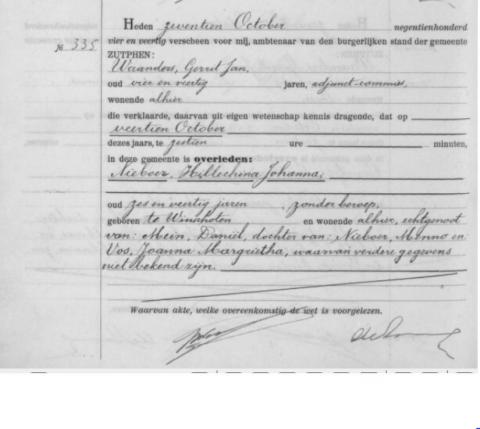 Heden zeventien October negentienhonderd
№ 335 vier en veertig verscheen voor mij, ambtenaar van den burgerlijken stand der gemeente
ZUTPHEN:
Waanders, Gerrit Jan,
oud vier en veertig jaren, adjunct-commies,
wonende alhier
die verklaarde, daarvan uit eigen wetenschap kennis dragende, dat op
veertien October
dezes jaars, te zestien ure minuten,
in deze gemeente is overleden:
Nieboer, Hillechina Johanna,
oud zes en veertig jaren, zonder beroep,
geboren te Winschoten en wonende alhier, echtgenoot
van: Mein, Daniël, dochter van: Nieboer, Menno en
Vos, Joanna Margrietha, waarvan verdere gegevens
niet bekend zijn.
Waarvan akte, welke overeenkomstig de wet is voorgelezen.